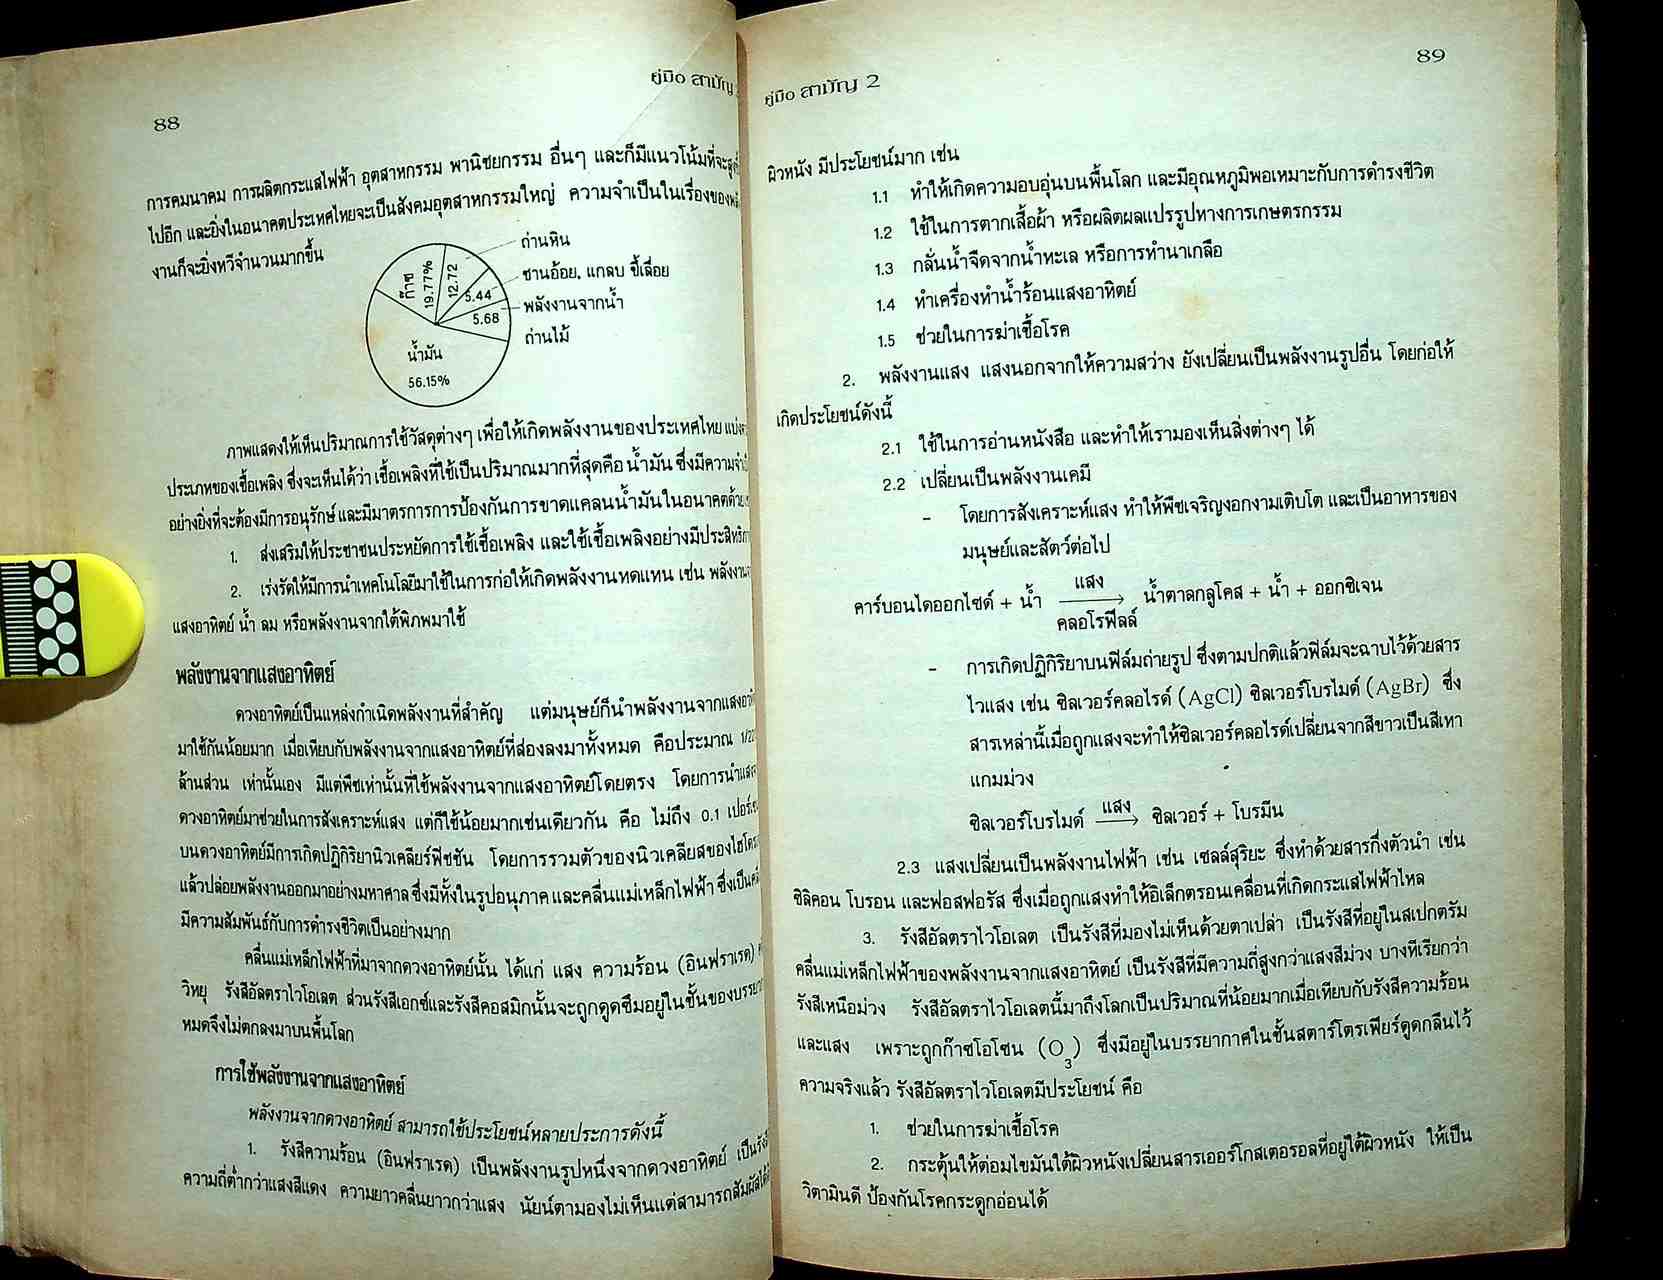 88
คู่มือ สามัญ
การคมนาคม การผลิตกระแสไฟฟ้า อุตสาหกรรม พานิชยกรรม อื่นๆ และก็มีแนวโน้มที่จะ
ไปอีก และยิ่งในอนาคตประเทศไทยจะเป็นสังคมอุตสาหกรรมใหญ่ ความจำเป็นในเรื่องของ
งานก็จะยิ่งทวีจำนวนมากขึ้น
ถ่านหิน
ชานอ้อย, แกลบ ขี้เลื่อย
พลังงานจากน้ำ
ถ่านไม้
ก๊าซ
19.77%
12.72
5.44
5.68
น้ำมัน
56.15%
ภาพแสดงให้เห็นปริมาณการใช้วัสดุต่างๆ เพื่อให้เกิดพลังงานของประเทศไทย
ประเภทของเชื้อเพลิง ซึ่งจะเห็นได้ว่า เชื้อเพลิงที่ใช้เป็นปริมาณมากที่สุดคือ น้ำมัน ซึ่งมีความ
อย่างยิ่งที่จะต้องมีการอนุรักษ์ และมีมาตรการการป้องกันการขาดแคลนน้ำมันในอนาคตด้วย
1. ส่งเสริมให้ประชาชนประหยัดการใช้เชื้อเพลิง และใช้เชื้อเพลิงอย่างมี
2. เร่งรัดให้มีการนำเทคโนโลยีมาใช้ในการก่อให้เกิดพลังงานทดแทน เช่น
แสงอาทิตย์ น้ำ ลม หรือพลังงานจากใต้พิภพมาใช้
พลังงานจากแสงอาทิตย์
ดวงอาทิตย์เป็นแหล่งกำเนิดพลังงานที่สำคัญ แต่มนุษย์ก็นำพลังงานจาก
มาใช้กันน้อยมาก เมื่อเทียบกับพลังงานจากแสงอาทิตย์ที่ส่องลงมาทั้งหมด คือประมาณ
ล้านส่วน เท่านั้นเอง มีแต่พืชเท่านั้นที่ใช้พลังงานจากแสงอาทิตย์โดยตรง โดยการนำ
ดวงอาทิตย์มาช่วยในการสังเคราะห์แสง แต่ก็ใช้น้อยมากเช่นเดียวกัน คือ ไม่ถึง 0.1
บนดวงอาทิตย์มีการเกิดปฏิกิริยานิวเคลียร์ฟิชชัน โดยการรวมตัวของนิวเคลียสของ
แล้วปล่อยพลังงานออกมาอย่างมหาศาล ซึ่งมีทั้งในรูปอนุภาค และคลื่นแม่เหล็กไฟฟ้า ซึ่งเป็น
มีความสัมพันธ์กับการดำรงชีวิตเป็นอย่างมาก
คลื่นแม่เหล็กไฟฟ้าที่มาจากดวงอาทิตย์นั้น ได้แก่ แสง ความร้อน (อินฟราเรด)
วิทยุ รังสีอัลตราไวโอเลต ส่วนรังสีเอกซ์และรังสีคอสมิกนั้นจะถูกดูดซึมอยู่ในชั้นของ
หมดจึงไม่ตกลงมาบนพื้นโลก
การใช้พลังงานจากแสงอาทิตย์
พลังงานจากดวงอาทิตย์ สามารถใช้ประโยชน์หลายประการดังนี้
1. รังสีความร้อน (อินฟราเรด) เป็นพลังงานรูปหนึ่งจากดวงอาทิตย์
ความถี่ต่ำกว่าแสงสีแดง ความยาวคลื่นยาวกว่าแสง นัยน์ตามองไม่เห็นแต่สามารถสัมผัส
คู่มือ สามัญ 2
89
ผิวหนัง มีประโยชน์มาก เช่น
1.1 ทำให้เกิดความอบอุ่นบนพื้นโลก และมีอุณหภูมิพอเหมาะกับการดำรงชีวิต
1.2 ใช้ในการตากเสื้อผ้า หรือผลิตผลแปรรูปทางการเกษตรกรรม
1.3 กลั่นน้ำจืดจากน้ำทะเล หรือการทำนาเกลือ
1.4 ทำเครื่องทำน้ำร้อนแสงอาทิตย์
1.5 ช่วยในการฆ่าเชื้อโรค
2. พลังงานแสง แสงนอกจากให้ความสว่าง ยังเปลี่ยนเป็นพลังงานรูปอื่น โดยก่อให้
เกิดประโยชน์ดังนี้
2.1 ใช้ในการอ่านหนังสือ และทำให้เรามองเห็นสิ่งต่างๆ ได้
2.2 เปลี่ยนเป็นพลังงานเคมี
- โดยการสังเคราะห์แสง ทำให้พืชเจริญงอกงามเติบโต และเป็นอาหารของ
มนุษย์และสัตว์ต่อไป
แสง
คาร์บอนไดออกไซด์ + น้ำ ⟶ น้ำตาลกลูโคส + น้ำ + ออกซิเจน
คลอโรฟีลล์
- การเกิดปฏิกิริยาบนฟิล์มถ่ายรูป ซึ่งตามปกติแล้วฟิล์มจะฉาบไว้ด้วยสาร
ไวแสง เช่น ซิลเวอร์คลอไรด์ (AgCl) ซิลเวอร์โบรไมด์ (AgBr) ซึ่ง
สารเหล่านี้เมื่อถูกแสงจะทำให้ซิลเวอร์คลอไรด์เปลี่ยนจากสีขาวเป็นสีเทา
แกมม่วง
แสง
ซิลเวอร์โบรไมด์ ⟶ ซิลเวอร์ + โบรมีน
2.3 แสงเปลี่ยนเป็นพลังงานไฟฟ้า เช่น เซลล์สุริยะ ซึ่งทำด้วยสารกึ่งตัวนำ เช่น
ซิลิคอน โบรอน และฟอสฟอรัส ซึ่งเมื่อถูกแสงทำให้อิเล็กตรอนเคลื่อนที่เกิดกระแสไฟฟ้าไหล
3. รังสีอัลตราไวโอเลต เป็นรังสีที่มองไม่เห็นด้วยตาเปล่า เป็นรังสีที่อยู่ในสเปกตรัม
คลื่นแม่เหล็กไฟฟ้าของพลังงานจากแสงอาทิตย์ เป็นรังสีที่มีความถี่สูงกว่าแสงสีม่วง บางทีเรียกว่า
รังสีเหนือม่วง รังสีอัลตราไวโอเลตนี้มาถึงโลกเป็นปริมาณที่น้อยมากเมื่อเทียบกับรังสีความร้อน
และแสง เพราะถูกก๊าซโอโซน (O₃) ซึ่งมีอยู่ในบรรยากาศในชั้นสตาร์โตรเฟียร์ดูดกลืนไว้
ความจริงแล้ว รังสีอัลตราไวโอเลตมีประโยชน์ คือ
1. ช่วยในการฆ่าเชื้อโรค
2. กระตุ้นให้ต่อมไขมันใต้ผิวหนังเปลี่ยนสารเออร์โกสเตอรอลที่อยู่ใต้ผิวหนัง ให้เป็น
วิตามินดี ป้องกันโรคกระดูกอ่อนได้